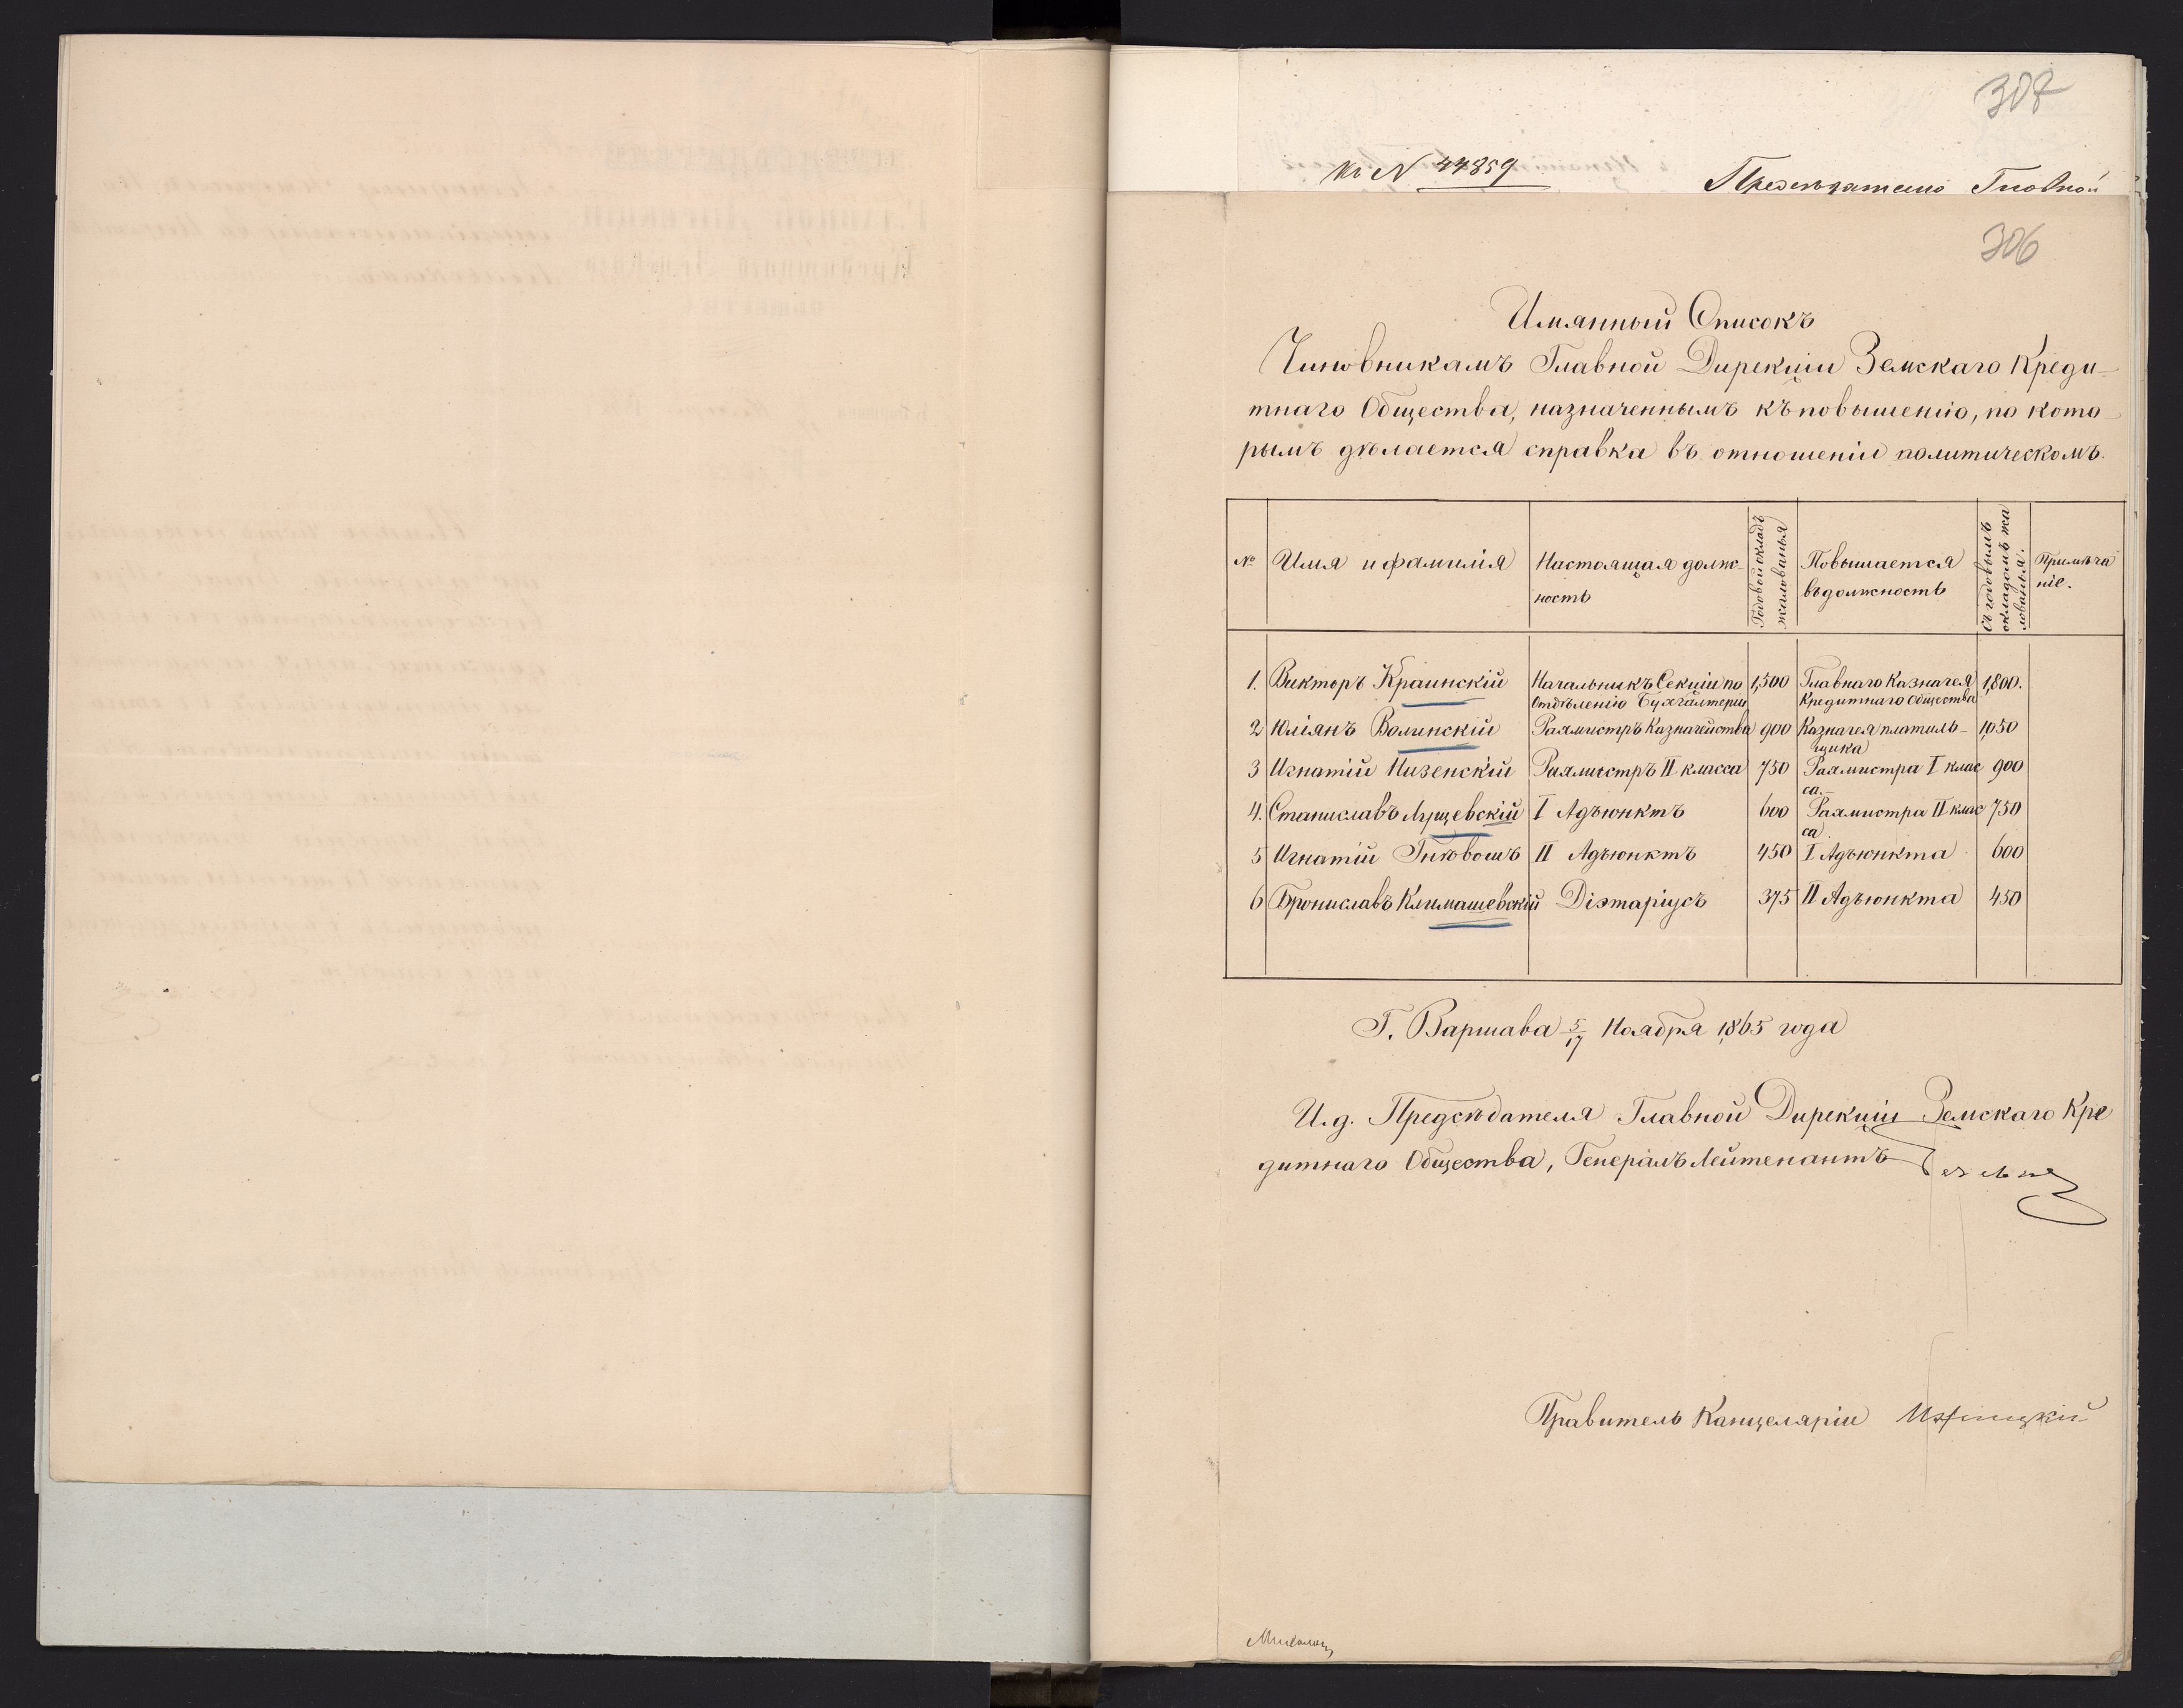 307
К N 44859
Председателю Главной
306
Имянный Списокъ
Чиновникамъ Главной Дирекціи Земскаго Креди-
тнаго Общества, назначеннымъ къ повышенію, по кото-
рымъ дѣлается справка въ отношеніи политическомъ.
№ Имя и фамилія Настоящая долж-ность Годовой окладъ жалованья Повышается въ должность Съ годовымъ окладомъ жалованья. Примѣчаніе.
1. Викторъ Краинскій Начальникъ Секціи по Отдѣленію Бухгалтеріи 1,500 Главнаго Казначея Кредитнаго Общества 1,800.
2 Юліянъ Волинскій Рахмистръ Казначейства 900 Казначея платиль-щика 1,050
3 Игнатій Низенскій Рахмистръ II класса 750 Рахмистра I клас са. 900
4. Станиславъ Лущевскій I Адъюнктъ 600 Рахмистра II клас са. 750
5 Игнатій Гнѣвошъ II Адъюнктъ 450 I Адъюнкта 600
6 Брониславъ Климашевскій Діэтаріусъ 375 II Адъюнкта 450
Г. Варшава 5/17 Ноября 1865 года
И. д. Предсѣдателя Главной Дирекціи Земскаго Кре
дитнаго Общества, Генералъ Лейтенантъ
Правитель Канцеляріи